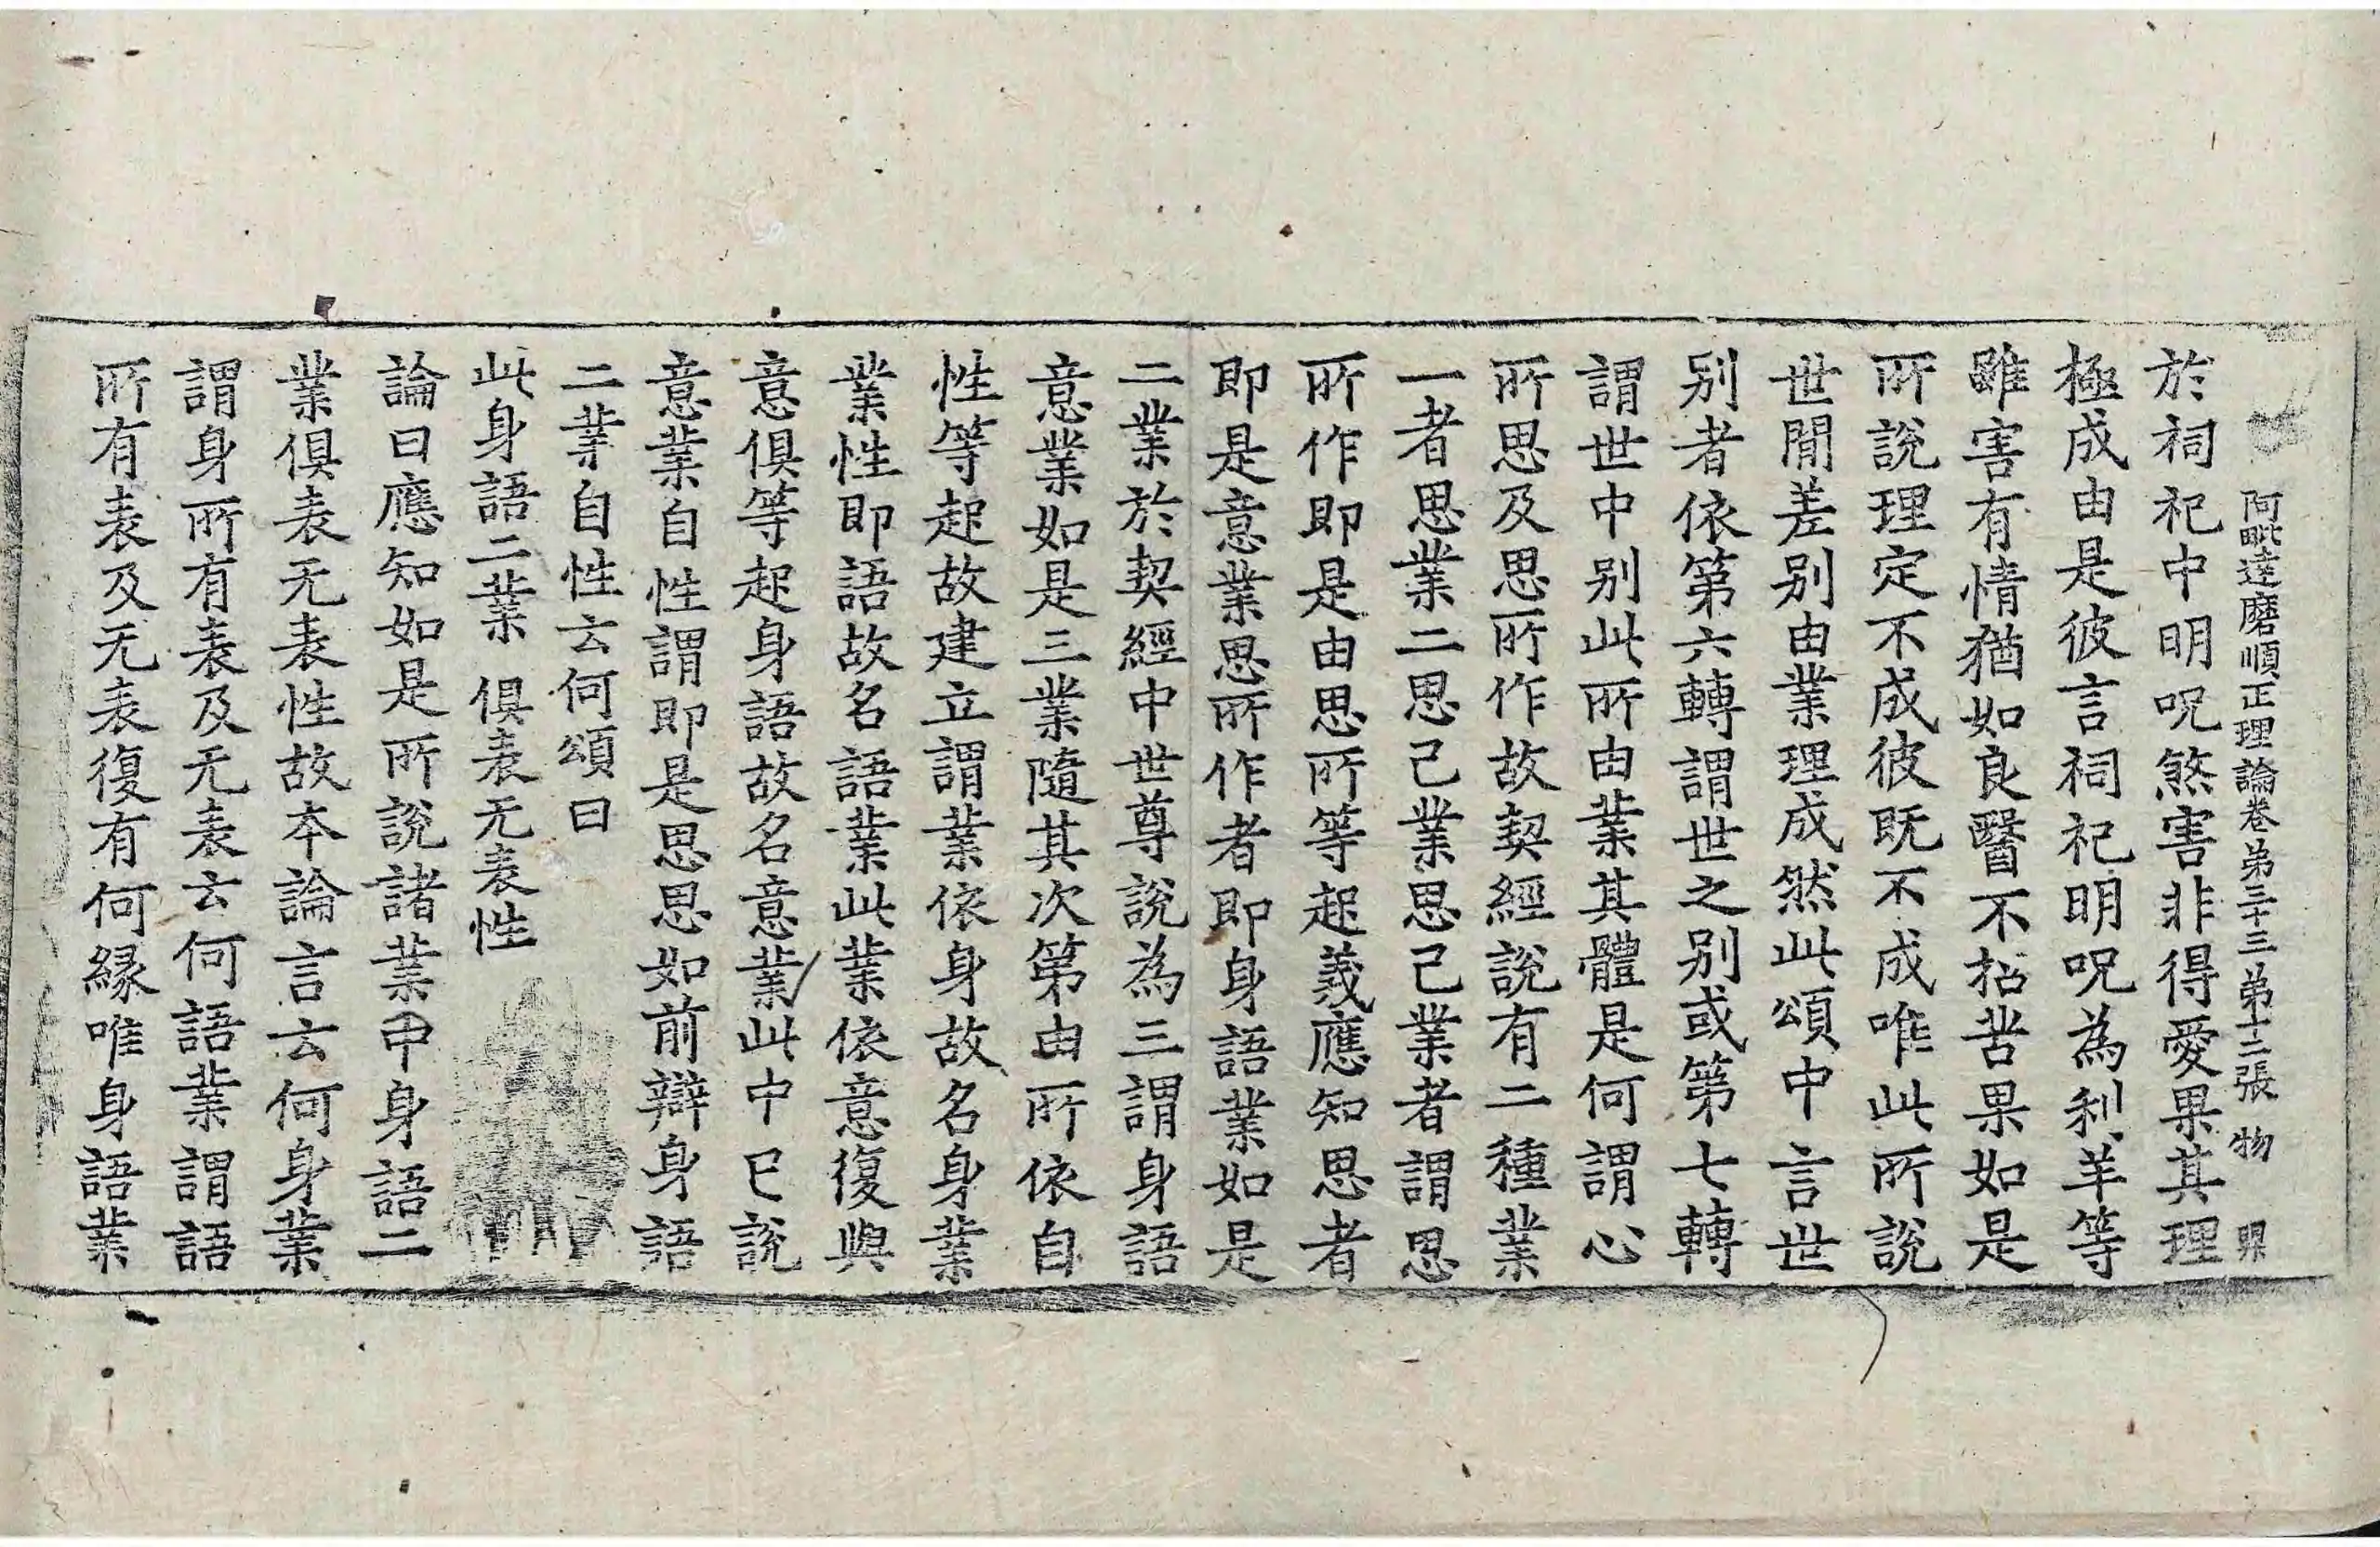 阿毗達磨順正理論卷弟三十三弟十二張 物 果
於祠祀中明呪煞害非得愛果其理
極成由是彼言祠祀明呪為利羊等
雖害有情猶如良醫不招苦果如是
所說理定不成彼既不成唯此所說
世間差別由業理成然此頌中言世
別者依第六轉謂世之別或第七轉
謂世中別此所由業其體是何謂心
所思及思所作故契經說有二種業
一者思業二思已業思已業者謂思
所作即是由思所等起義應知思者
即是意業思所作者即身語業如是
二業於契經中世尊說為三謂身語
意業如是三業隨其次第由所依自
性等起故建立謂業依身故名身業
業性即語故名語業此業依意復與
意俱等起身語故名意業此中已說
意業自性謂即是思思如前辯身語
二業自性云何頌曰
此身語二業 俱表无表性
論曰應知如是所說諸業中身語二
業俱表无表性故本論言云何身業
謂身所有表及无表云何語業謂語
所有表及无表復有何緣唯身語業